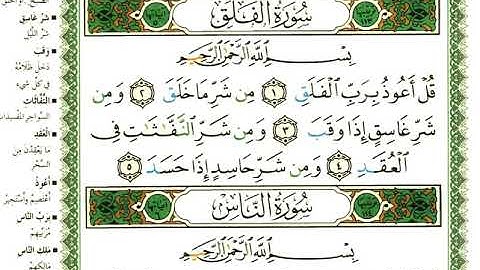 سُورَةُ الْفَلَقِ
بِسْمِ اللَّهِ الرَّحْمَٰنِ الرَّحِيمِ
قُلْ أَعُوذُ بِرَبِّ الْفَلَقِ ١ مِن شَرِّ مَا خَلَقَ ٢ وَمِن
شَرِّ غَاسِقٍ إِذَا وَقَبَ ٣ وَمِن شَرِّ النَّفَّاثَاتِ فِي
الْعُقَدِ ٤ وَمِن شَرِّ حَاسِدٍ إِذَا حَسَدَ ٥
سُورَةُ النَّاسِ
بِسْمِ اللَّهِ الرَّحْمَٰنِ الرَّحِيمِ
شَرِّ غَاسِقٍ
شَرِّ اللَّيْلِ
وَقَبَ
دَخَلَ ظَلَامُهُ
فِي كُلِّ شَيْءٍ
النَّفَّاثَاتِ
السَّوَاحِرِ المُفْسِدَاتِ
الْعُقَدِ
مَا يَعْقِدْنَ مِنَ
السِّحْرِ
أَعُوذُ
أَعْتَصِمُ وَأَسْتَجِيرُ
بِرَبِّ النَّاسِ
مُرَبِّيهِمْ
مَلِكِ النَّاسِ
مَالِكِهِمْ